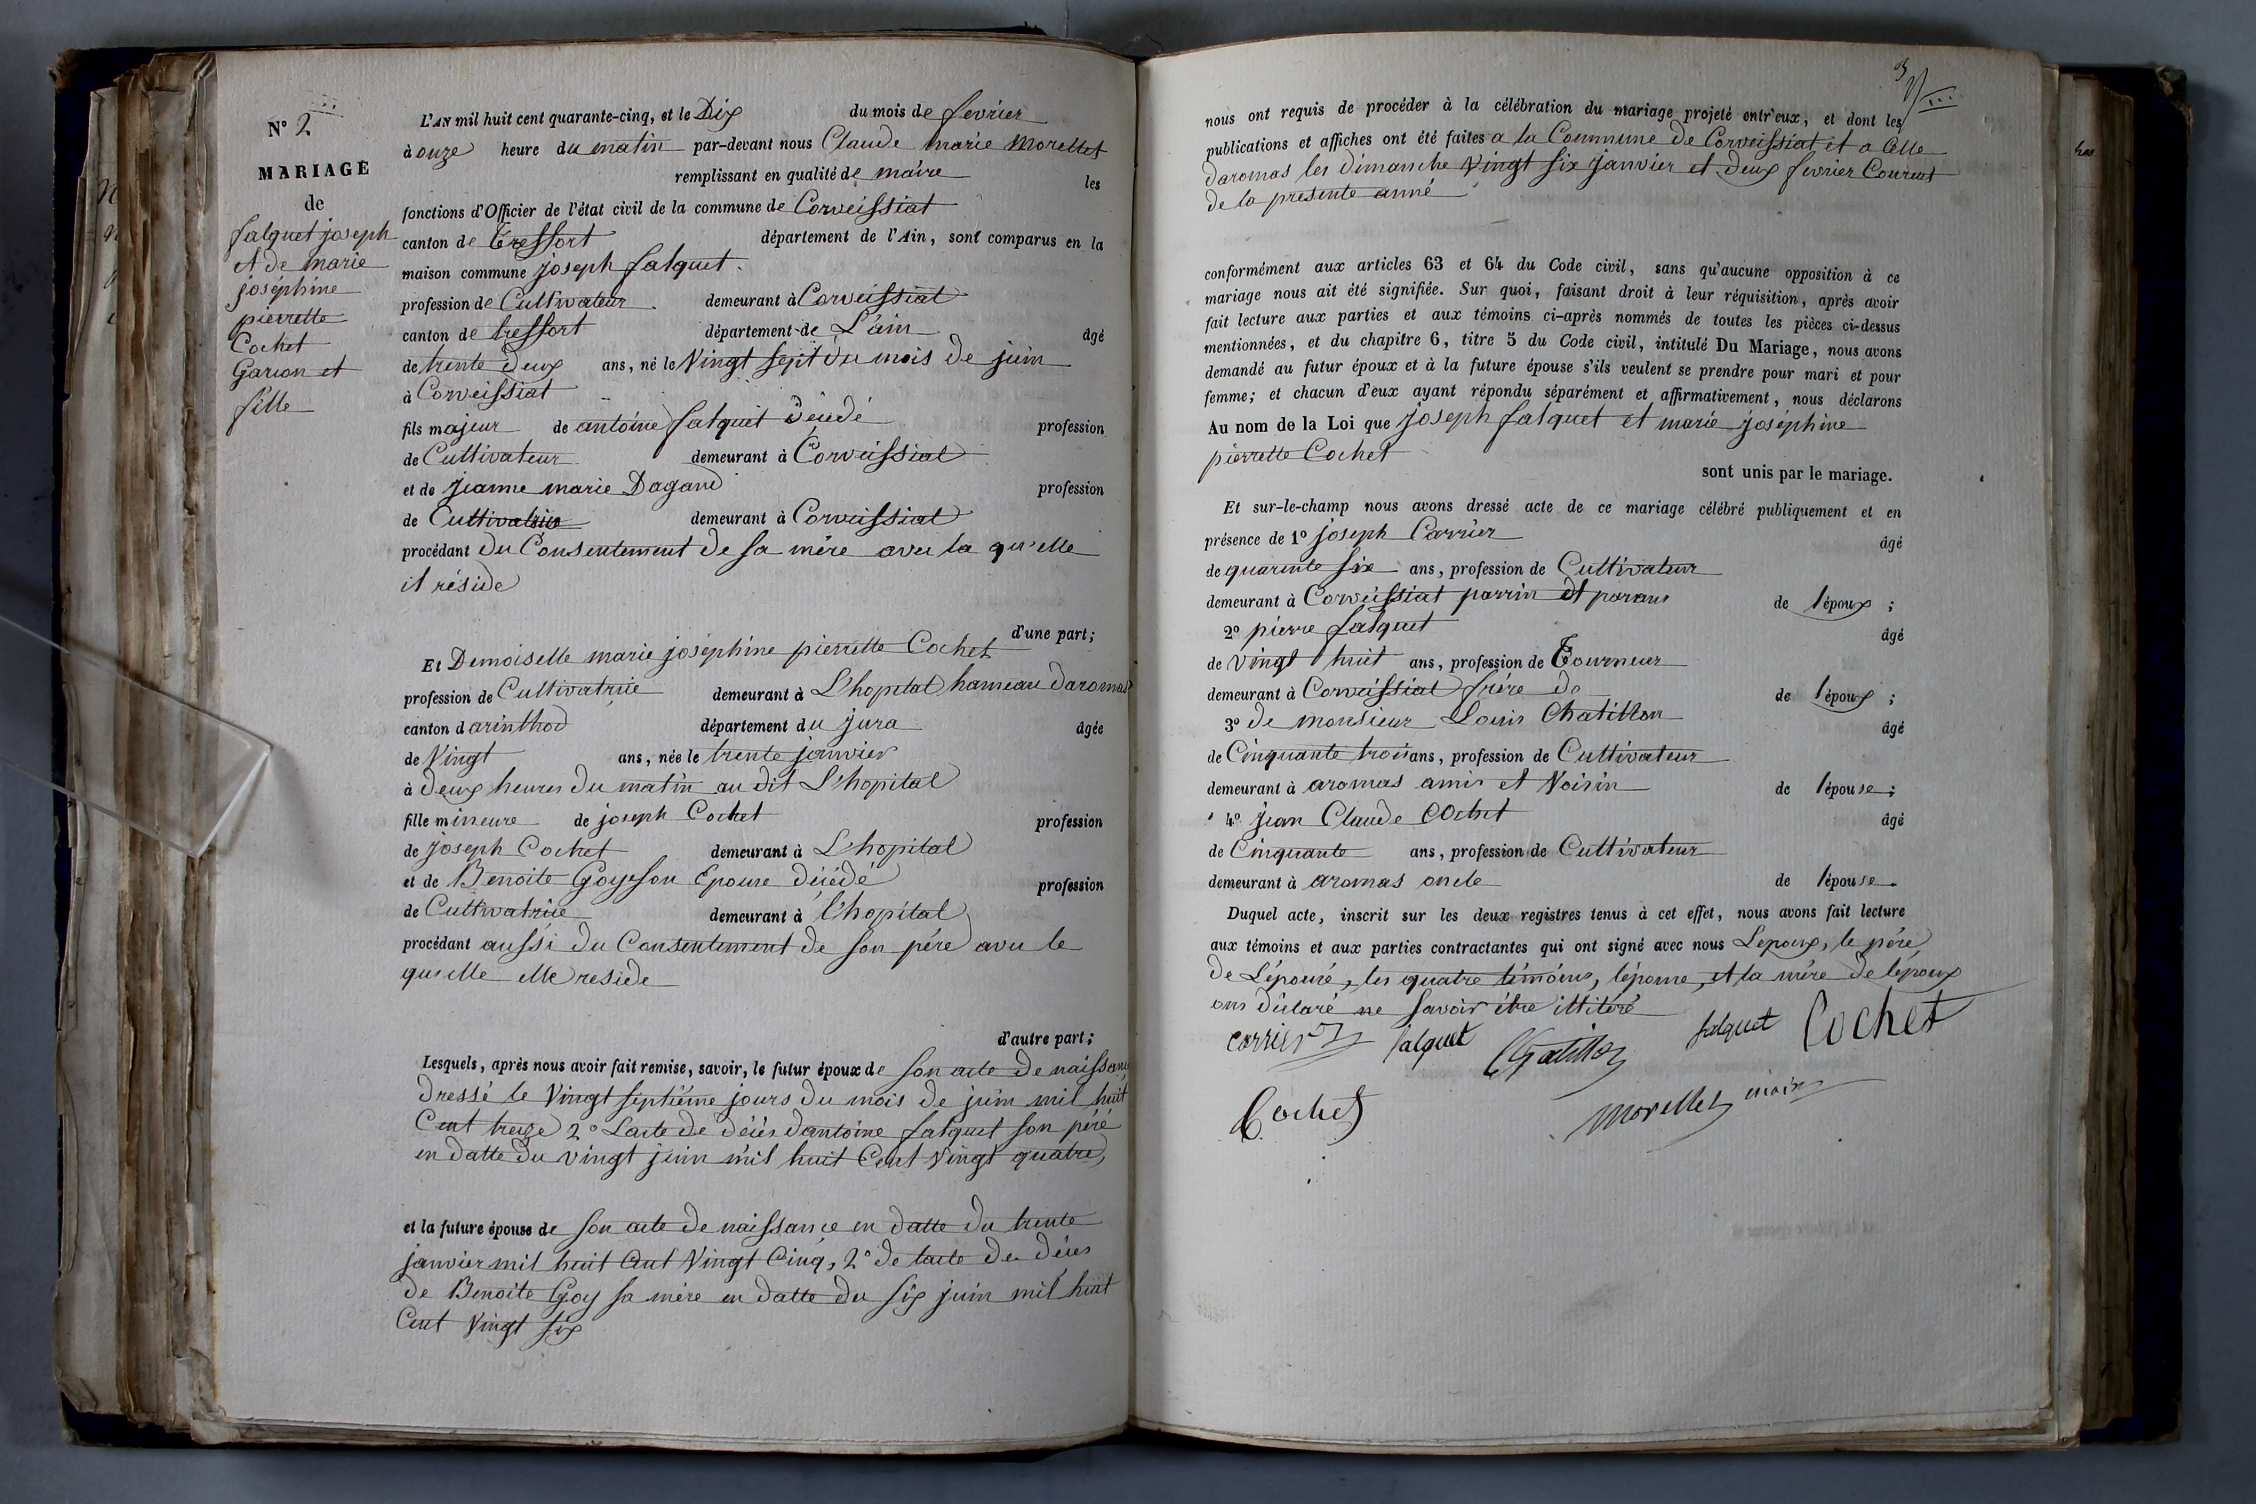 N° 2
MARIAGE
de
falquet joseph
et de marie
joséphine
pierrette
Cochet
Garcon et
fille
L'AN mil huit cent quarante-cinq, et le Dix du mois de fevrier
à onze heure du matin par-devant nous Claude marie Morellet
remplissant en qualité de maire les
fonctions d'Officier de l'état civil de la commune de Corveissiat
canton de Treffort département de l'Ain, sont comparus en la
maison commune joseph falquet
profession de Cultivateur demeurant à Corveissiat
canton de treffort département de L'ain âgé
de trente deux ans, né le Vingt sept du mois de juin
à Corveissiat
fils majeur de antoine falquet décédé profession
de Cultivateur demeurant à Corveissiat
et de jeanne marie Dagand profession
de Cultivatrice demeurant à Corveissiat
procédant du Consentement de sa mére avec la qu'elle
il réside
d'une part;
Et Demoiselle marie joséphine pierrette Cochet
profession de Cultivatrice demeurant à L'hopital hameau daromas
canton d arinthod département du jura âgée
de Vingt ans, née le trente janvier
à deux heures du matin au dit L'hopital
fille mineure de joseph Cochet profession
de joseph Cochet demeurant à L'hopital
et de Benoite Goyffon Epouse décédé profession
de Cultivatrice demeurant à l'hopital
procédant aussi du Consentement de son pére avec le
quelle elle reside
d'autre part;
Lesquels, après nous avoir fait remise, savoir, le futur époux de son acte de naissance
dressé le Vingt septiéme jours du mois de juin mil huit
Cent treize 2° Lacte de décés dantoine falquet son pére
en datte du vingt juin mil huit Cent Vingt quatre,
et la future épouse de son acte de naissance en datte du trente
janvier mil huit Cent Vingt Cinq, 2° de lacte de décès
de Benoite Goy sa mére en datte du six juin mil huit
Cent Vingt six
3
nous ont requis de procéder à la célébration du mariage projeté entr'eux, et dont les
publications et affiches ont été faites a la Commune de Corveissiat et a Celle
daromas les dimanche Vingt six janvier et deux fevrier Courent
de la presente anné
conformément aux articles 63 et 64 du Code civil, sans qu'aucune opposition à ce
mariage nous ait été signifiée. Sur quoi, faisant droit à leur réquisition, après avoir
fait lecture aux parties et aux témoins ci-après nommés de toutes les pièces ci-dessus
mentionnées, et du chapitre 6, titre 5 du Code civil, intitulé Du Mariage, nous avons
demandé au futur époux et à la future épouse s'ils veulent se prendre pour mari et pour
femme; et chacun d'eux ayant répondu séparément et affirmativement, nous déclarons
Au nom de la Loi que joseph falquet et marie joséphine
pierrette Cochet
sont unis par le mariage.
Et sur-le-champ nous avons dressé acte de ce mariage célébré publiquement et en
présence de 1° joseph Carrier âgé
de quarente six ans, profession de Cultivateur
demeurant à Corveissiat parrin et parans de l'époux;
2° pierre falquet âgé
de vingt huit ans, profession de Tourneur
demeurant à Corveissiat frére do de l'époux;
3° de monsieur Louis Chatillon âgé
de Cinquante trois ans, profession de Cultivateur
demeurant à aromas amis et Voisin de l'épouse;
4° jean Claude Cochet âgé
de Cinquante ans, profession de Cultivateur
demeurant à aromas oncle de l'épouse.
Duquel acte, inscrit sur les deux registres tenus à cet effet, nous avons fait lecture
aux témoins et aux parties contractantes qui ont signé avec nous Lepoux, le pére
de Lépouse, les quatre témoins, lépouse, et la mére de lépoux
ons déclaré ne savoir étre illitéré
carrier falquet Chatillon falquet Cochet
Cochet morellet maire